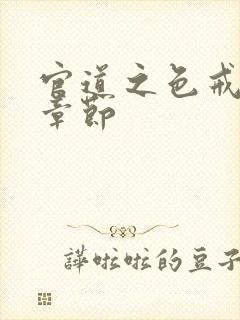 官道之色戒
章節
譁啦啦的豆子